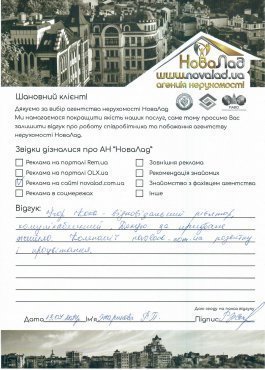 НоваЛад
www.novalad.ua
агенція нерухомості
Шановний клієнт!
Дякуємо за вибір агентства нерухомості НоваЛад
Ми намагаємося покращити якість наших послуг, саме тому просимо Вас
залишити відгук про роботу співробітника та побажання агентству
нерухомості НоваЛад.
Звідки дізналися про АН "НоваЛад"
Реклама на порталі Rem.ua
Зовнішня реклама
Реклама на порталі OLX.ua
Рекомендація знайомих
Реклама на сайті novalad.com.ua
Знайомство з фахівцем агентства
Реклама в соцмережах
Інше
Відгук:
відповідальний рієлтор,
комунікабельний. Дякую за придбане
житло. Компанії розвитку
і процвітання.
Дата
Ім'я
Підпис